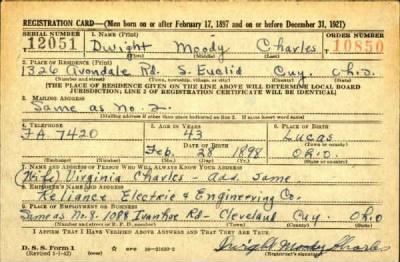 REGISTRATION CARD—(Men born on or after February 17, 1897 and on or before December 31, 1921)
SERIAL NUMBER 1. NAME (Print) ORDER NUMBER
12051 Dwight Moody Charles 10850
(First) (Middle) (Last)
2. PLACE OF RESIDENCE (Print)
1326 Avondale Rd. S. Euclid Cuy. Ohio
(Number and street) (Town, township, village, or city) (County) (State)
[THE PLACE OF RESIDENCE GIVEN ON THE LINE ABOVE WILL DETERMINE LOCAL BOARD
JURISDICTION; LINE 2 OF REGISTRATION CERTIFICATE WILL BE IDENTICAL]
3. MAILING ADDRESS
Same as No. 2.
[Mailing address if other than place indicated on line 2. If same insert word same]
4. TELEPHONE 5. AGE IN YEARS 6. PLACE OF BIRTH
FA. 7420 43 Lucas
DATE OF BIRTH (Town or county)
Feb. 28 1898 Ohio
(Mo.) (Day) (Yr.) (State or country)
7. NAME AND ADDRESS OF PERSON WHO WILL ALWAYS KNOW YOUR ADDRESS
(Wife) Virginia Charles - add. same
8. EMPLOYER'S NAME AND ADDRESS
Reliance Electric & Engineering Co.
9. PLACE OF EMPLOYMENT OR BUSINESS
Same as no. 8. 1088 Ivanhoe Rd- Cleveland Cuy. Ohio
(Number and street or R. F. D. number) (Town) (County) (State)
I AFFIRM THAT I HAVE VERIFIED ABOVE ANSWERS AND THAT THEY ARE TRUE.
D. S. S. Form 1
(Revised 1-1-42) (over) Dwight Moody Charles
(Registrant's signature)